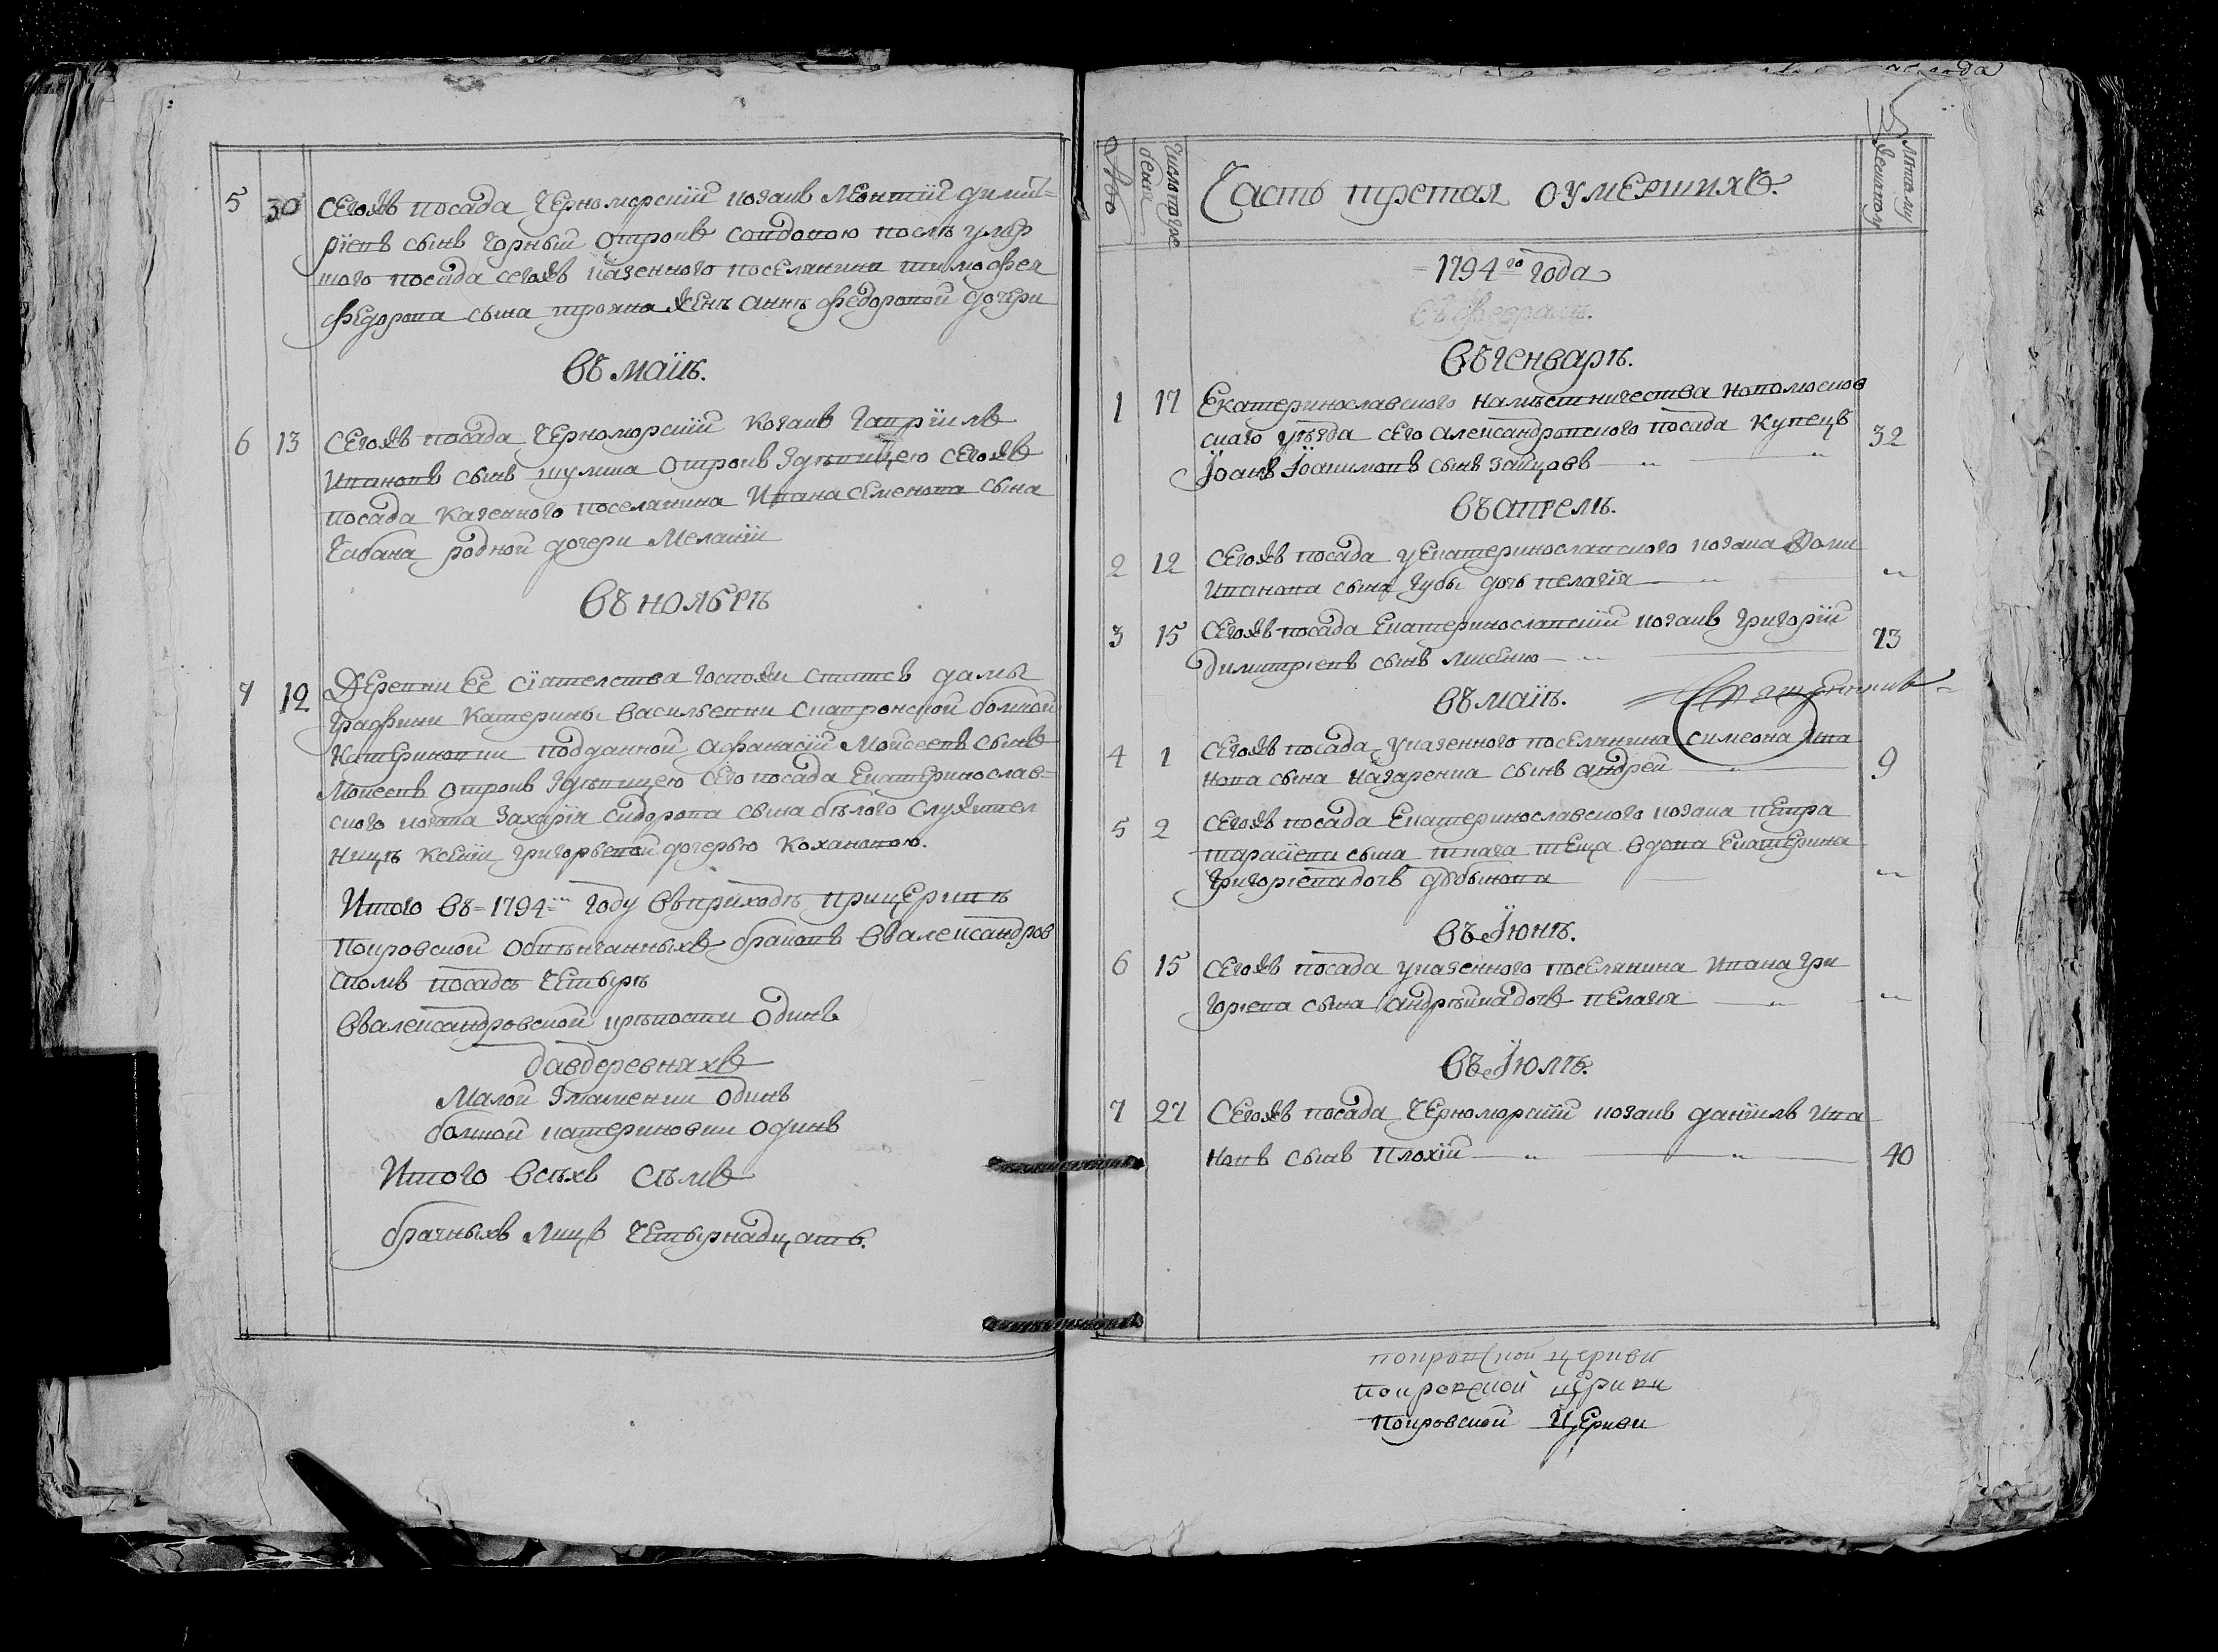 5 30 Сегожъ посада Черноморскiй козакъ Леонтiй Димит=
рiевъ сынъ Чорный отрокъ совдовою послѣ умер
шого посада сегожъ казенного поселянина Тимофея
Федорова сына трояна женѣ Аннѣ Федоровой дочери
Въ маiѣ.
6 13 Сегожъ посада Черноморскiй козакъ Гаврiилъ
Ивановъ сынъ шулика отрокъ здѣвицею сегожъ
посада казенного поселянина Ивана Семенова сына
Чабана родной дочери Меланiи
Въ ноябрѣ
7 12 Деревни Ее сiятелства Госпожи статсъ дамы
Графини Катерины Васильевни Скавронской болшой
Катериновки подданной Афанасiй Мойсеевъ сынъ
Моисеевъ отрокъ здѣвицею сего посада Екатеринослав=
ского козака Захарiя Сидорова сына бѣлого служител
ницѣ Ксенiи Григорьевой дочерью Кохановою.
Итого въ=1794мъ году въприходѣ прицеркви
Покровской обвѣнчанныхъ браковъ Въалександров
скомъ посадѣ четырѣ
Въалександровской крѣпости одинъ
давдеревняхъ
Малой Знаменки одинъ
болшой катериновки одинъ
Итого всѣхъ сѣмъ
брачныхъ лицъ четырнадцать.
Число погре
бенiя
Лѣта ему
Часть третая оумершихъ.
1794го года
въ февралѣ.
Въ генварѣ.
1 17 Екатеринославского намѣстничества новомосков
ского уѣзда сего александровского посада купецъ
Iоанъ Iоакимовъ сынъ зайцовъ 32
въ апрелѣ.
2 12 Сегожъ посада уекатеринославского козака Фоми
Иванова сына Губы дочь пелагiя
3 15 Сегожъ посада Екатеринославскiй козакъ Григорiй
Димитрiевъ сынъ лисенко 73
въ маiѣ. Священникъ=
4 1 Сегожъ посада указенного поселянина симеона Ива
нова сына Назаренка сынъ андрей 9
5 2 Сегожъ посада Екатеринославского козака петра
тарасiева сына теща вдова Екатерина
Григорiевадочъ
въ Iюнѣ.
6 15 Сегожъ посада указенного поселянина Ивана Гри
горiева сына дочъ пелагiя
въ Iюлѣ.
7 27 Сегожъ посада Черноморскiй козакъ данiилъ Ива
новъ сынъ плохiй 40
покровской церкви
покровской церкви
покровской церкви